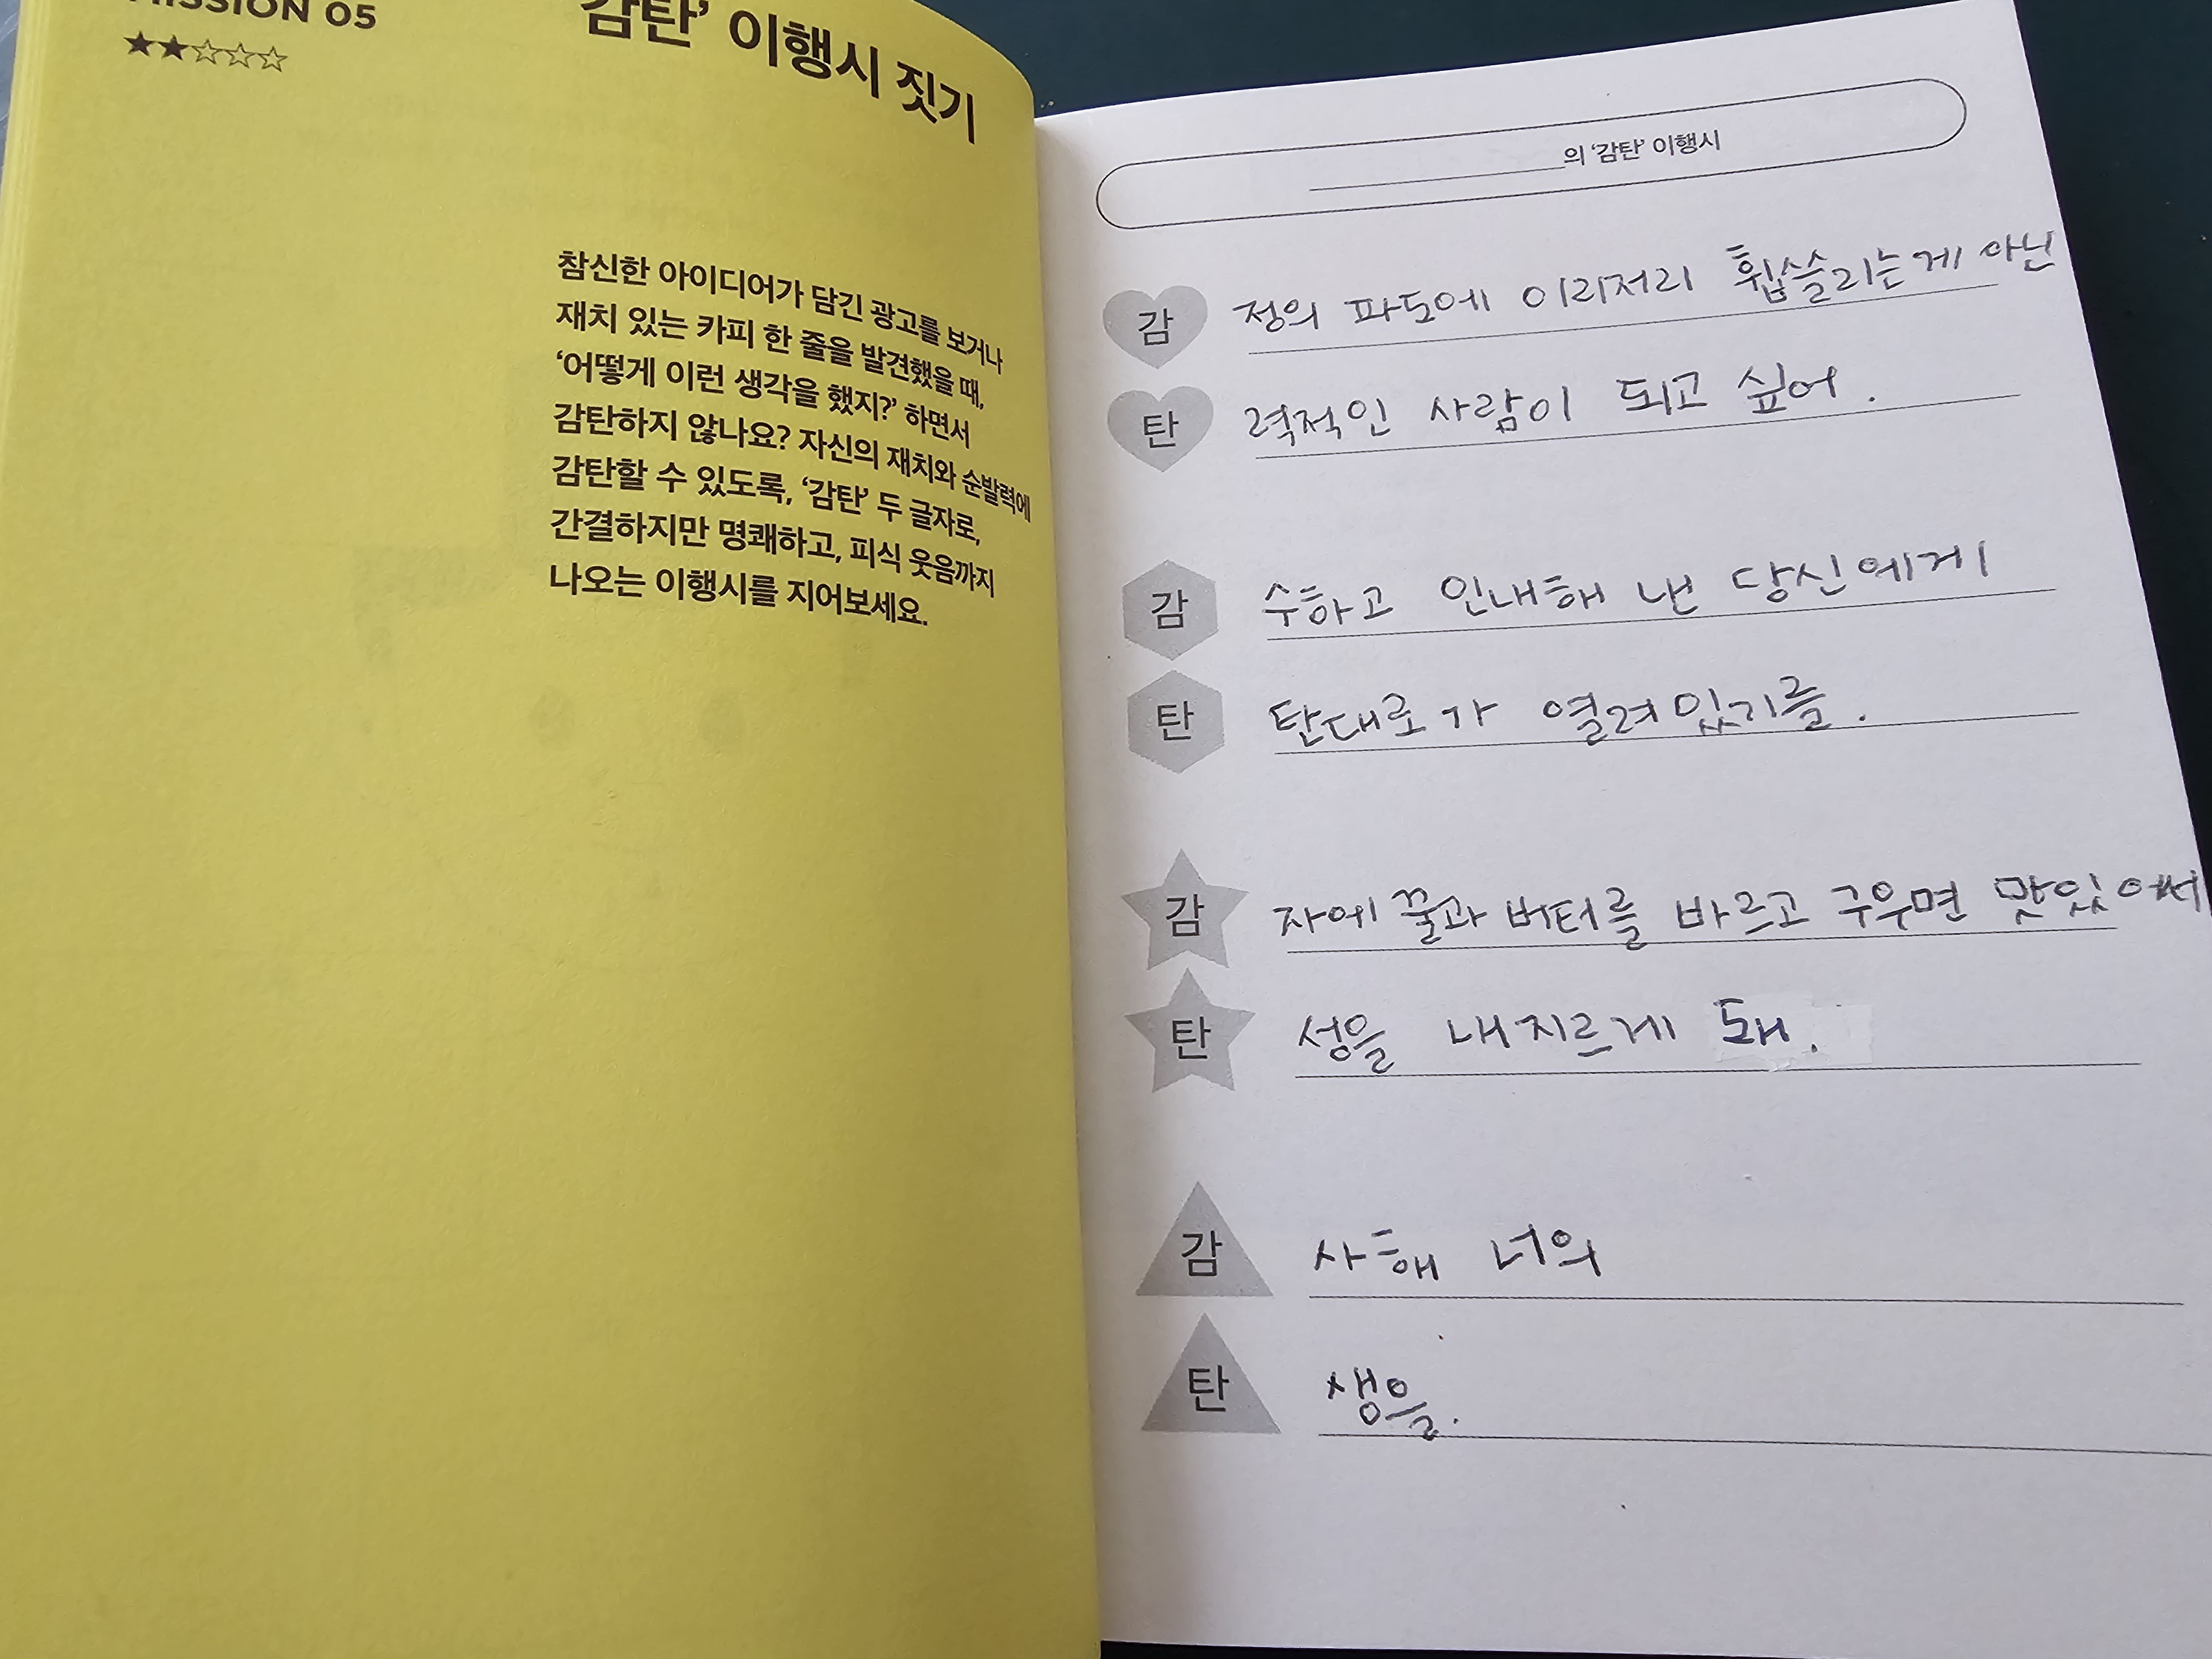 MISSION 05
★★☆☆☆
‘감탄’ 이행시 짓기
참신한 아이디어가 담긴 광고를 보거나
재치 있는 카피 한 줄을 발견했을 때,
‘어떻게 이런 생각을 했지?’ 하면서
감탄하지 않나요? 자신의 재치와 순발력에
감탄할 수 있도록, ‘감탄’ 두 글자로,
간결하지만 명쾌하고, 피식 웃음까지
나오는 이행시를 지어보세요.
의 ‘감탄’ 이행시
감 정의 파도에 이리저리 휩쓸리는게 아닌
탄 력적인 사람이 되고 싶어.
감 수하고 인내해 낸 당신에게
탄 탄대로가 열려있기를.
감 자에 꿀과 버터를 바르고 구우면 맛있어서
탄 성을 내지르게 돼.
감 사해 너의
탄 생을.